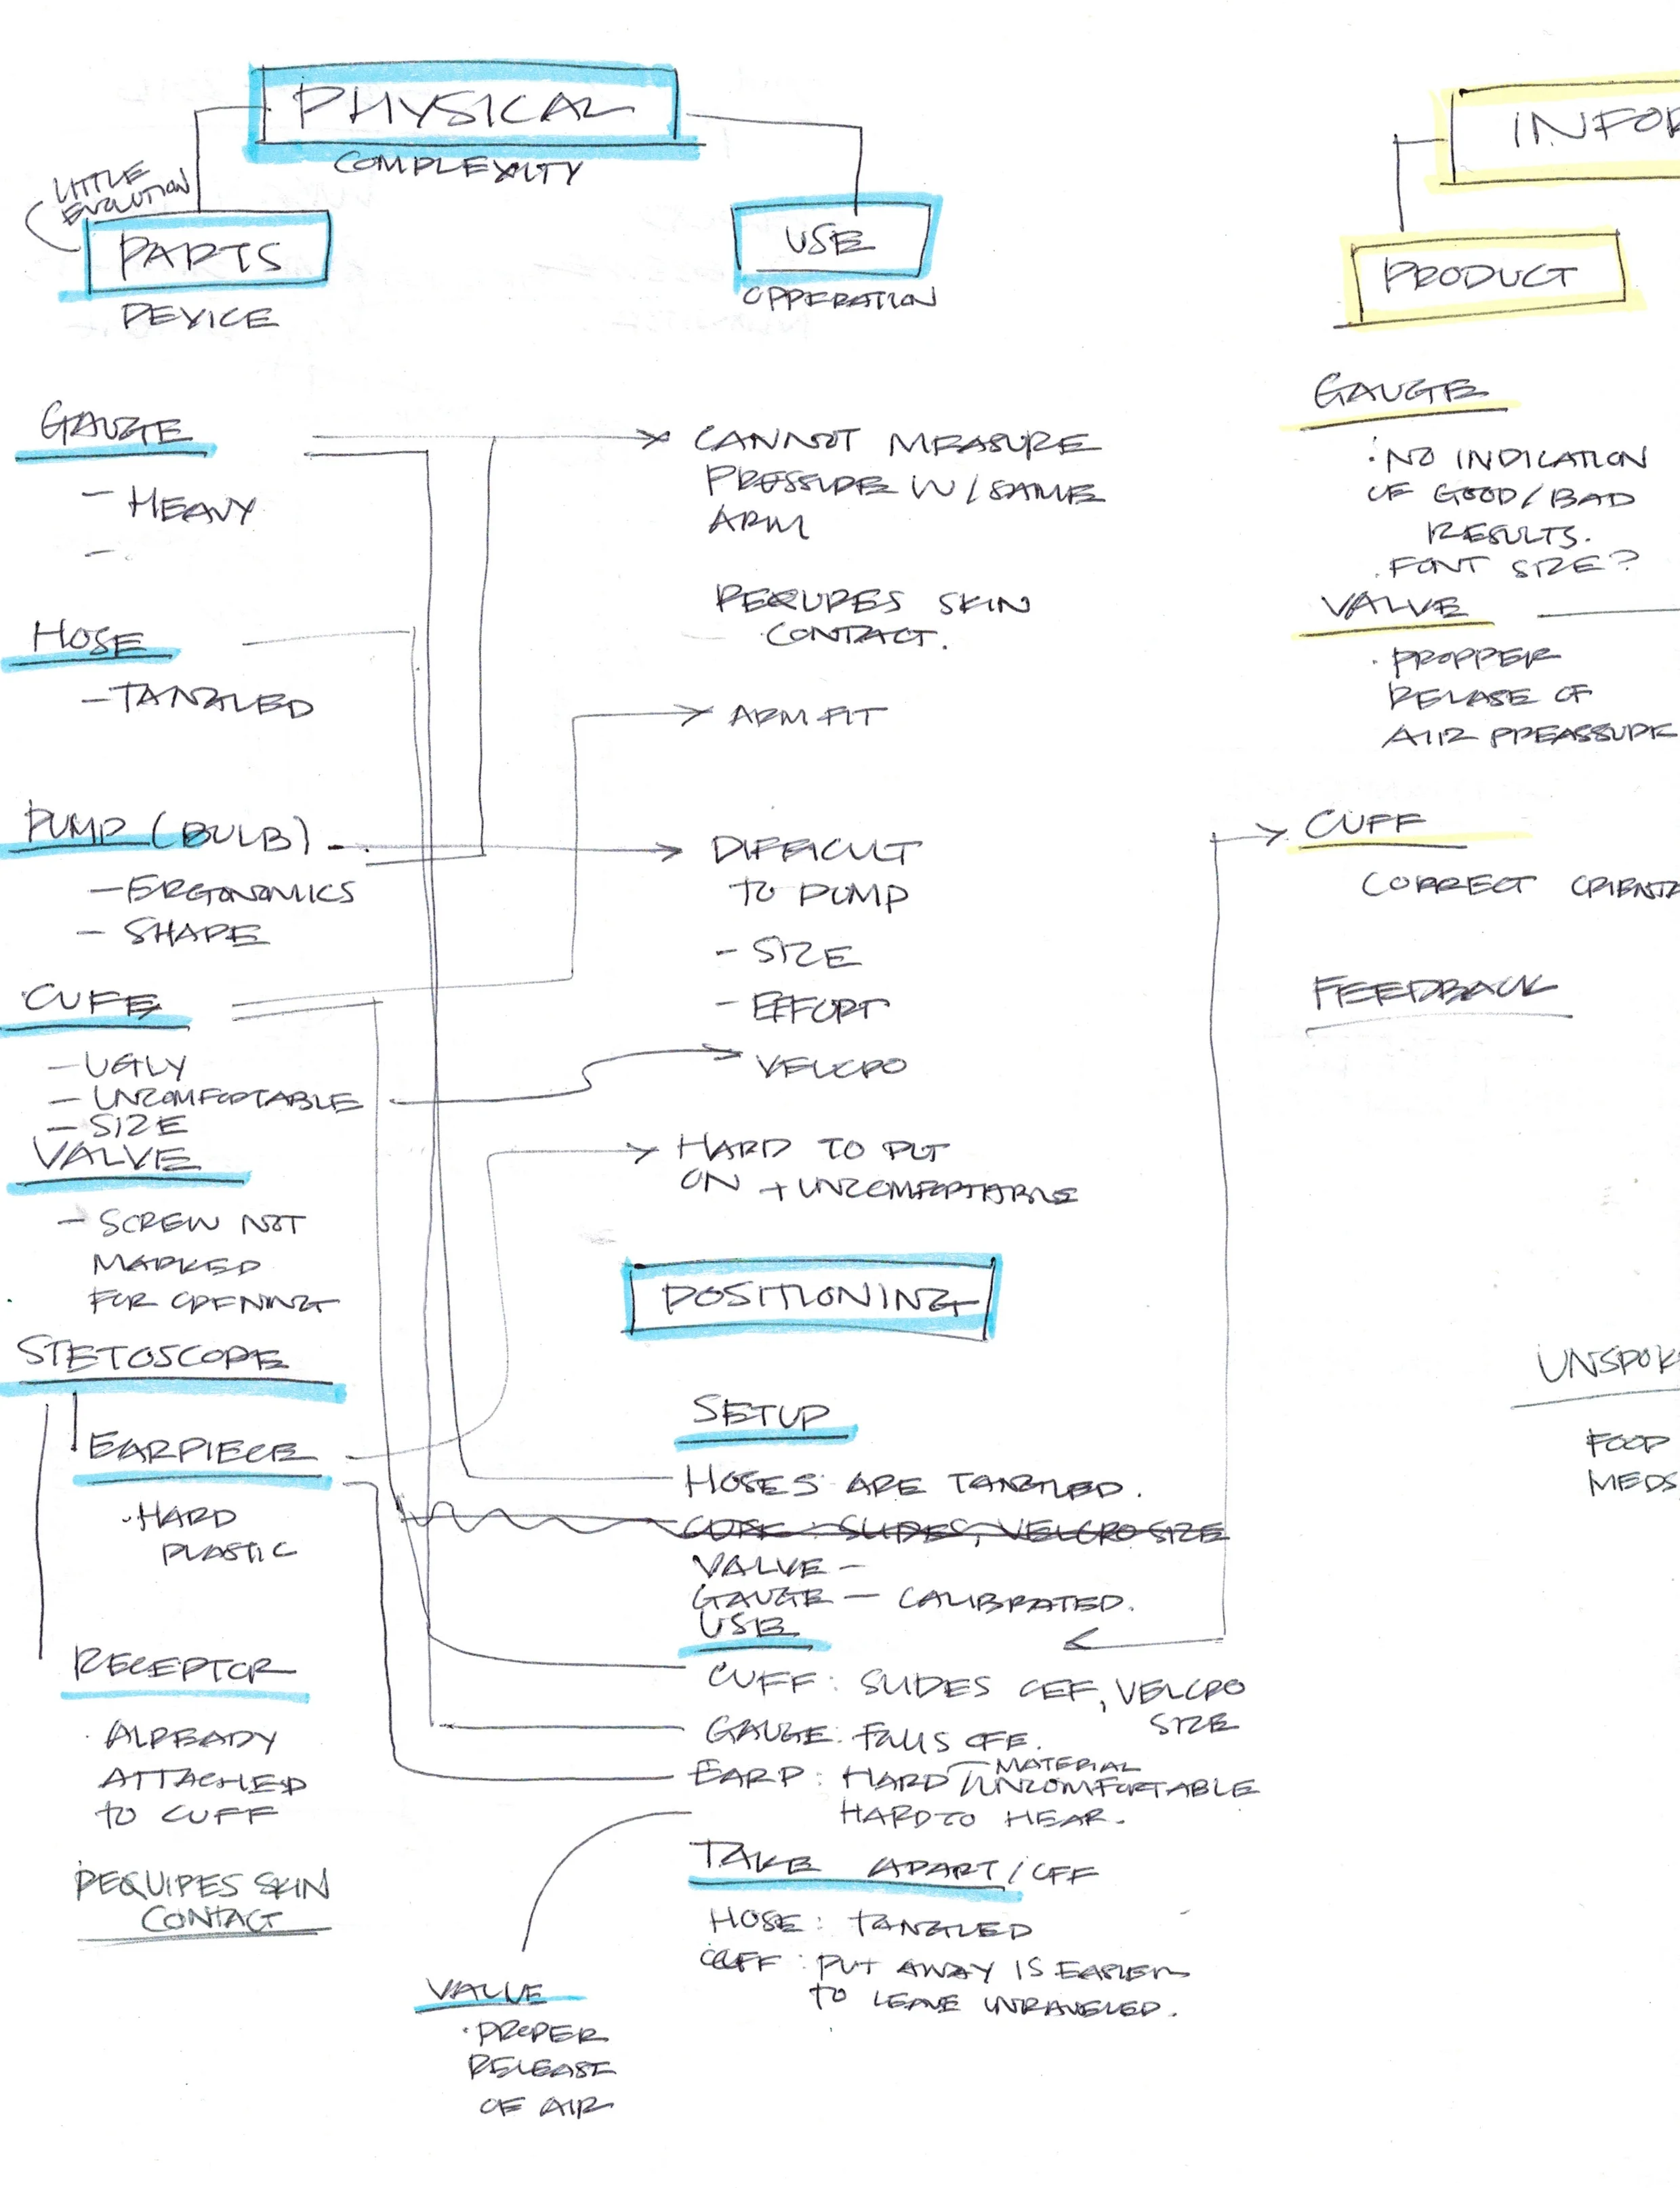 PHYSICAL
COMPLEXITY
LITTLE
EVOLUTION
PARTS
DEVICE
USE
OPPERATION
GAUGE
- HEAVY
-
HOSE
- TANGLED
PUMP (BULB)
- ERGONOMICS
- SHAPE
CUFF
- UGLY
- UNCOMFORTABLE
- SIZE
VALVE
- SCREW NOT
MARKED
FOR OPENING
STETOSCOPE
EARPIECE
· HARD
PLASTIC
RECEPTOR
· ALREADY
ATTACHED
TO CUFF
REQUIRES SKIN
CONTACT
CANNOT MEASURE
PRESSURE W/ SAME
ARM
REQUIRES SKIN
CONTACT.
ARM FIT
DIFFICULT
TO PUMP
- SIZE
- EFFORT
VELCRO
HARD TO PUT
ON + UNCOMFORTABLE
POSITIONING
SETUP
HOSES ARE TANGLED.
CUFF: SLIDES, VELCRO SIZE
VALVE -
GAUGE - CALIBRATED.
USE
CUFF: SLIDES OFF, VELCRO
SIZE
GAUGE: FALLS OFF.
MATERIAL
EARP: HARD / UNCOMFORTABLE
HARD TO HEAR.
TAKE APART / OFF
HOSE: TANGLED
CUFF: PUT AWAY IS EASIER
TO LEAVE UNRAVELED.
VALVE
· PROPER
RELEASE
OF AIR
INFOR
PRODUCT
GAUGE
· NO INDICATION
OF GOOD/BAD
RESULTS.
· FONT SIZE?
VALVE
· PROPPER
RELASE OF
AIR PREASSURE
CUFF
CORRECT ORIENTA
FEEDBACK
UNSPOK
FOOD
MEDS